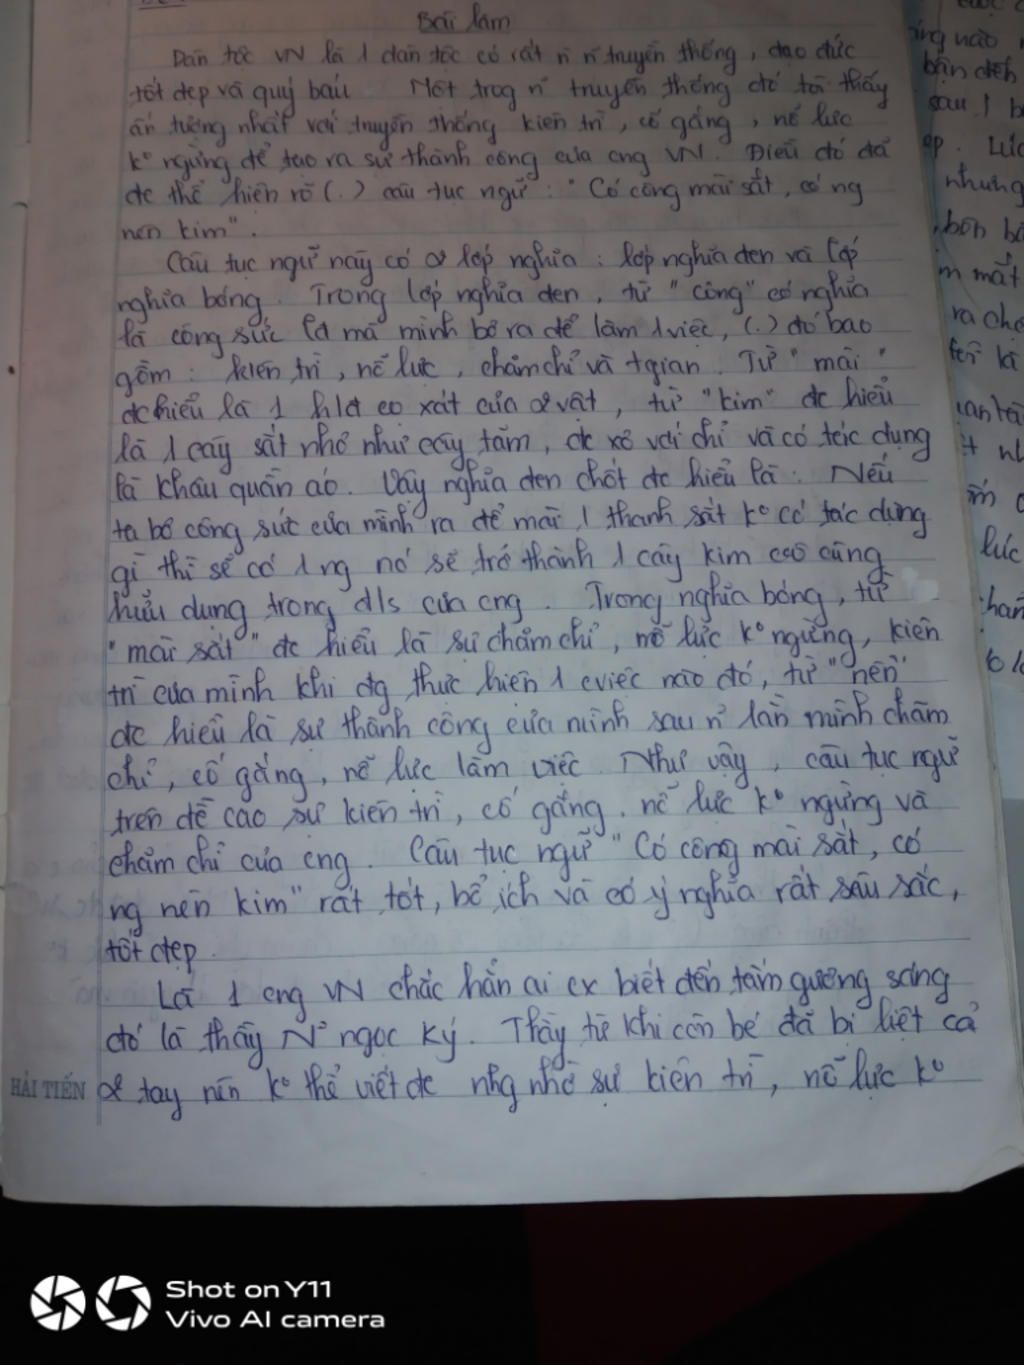 Bài làm
Dân tộc VN là 1 dân tộc có rất n n truyền thống, đạo đức
tốt đẹp và quý báu Một trog n~ truyền thống đó tôi thấy
ấn tượng nhất với truyền thống kiên trì, cố gắng, nổ lực
ko ngừng để tạo ra sự thành công của cng VN. Điều đó đã
đc thể hiện rõ (.) câu tục ngữ: "Có công mài sắt, có ng
nên kim".
Câu tục ngữ này có 2 lớp nghĩa: lớp nghĩa đen và lớp
nghĩa bóng. Trong lớp nghĩa đen, từ "công" có nghĩa
là công sức mà mình bỏ ra để làm 1 việc, (.) đó bao
gồm: kiên trì, nổ lực, chăm chỉ và tgian. Từ "mài"
đc hiểu là 1 hđ cọ xát của 2 vật, từ "kim" đc hiểu
là 1 cây sắt nhỏ như cây tăm, đc xỏ với chỉ và có tác dụng
là khâu quần áo. Vậy nghĩa đen chốt đc hiểu là: Nếu
ta bỏ công sức của mình ra để mài 1 thanh sắt ko có tác dụng
gì thì sẽ có 1 ng nó sẽ trở thành 1 cây kim vô cùng
hữu dụng trong đ/s của cng. Trong nghĩa bóng, từ
"mài sắt" đc hiểu là sự chăm chỉ, nỗ lực ko ngừng, kiên
trì của mình khi đg thực hiện 1 cviệc nào đó, từ "nên"
đc hiểu là sự thành công của mình sau n lần mình chăm
chỉ, cố gắng, nỗ lực làm việc. Như vậy, câu tục ngữ
trên đề cao sự kiên trì, cố gắng, nổ lực ko ngừng và
chăm chỉ của cng. Câu tục ngữ "Có công mài sắt, có
ng nên kim" rất tốt, bổ ích và có ý nghĩa rất sâu sắc,
tốt đẹp.
Là 1 cng VN chắc hẳn ai cx biết đến tấm gương sáng
đó là thầy N~ ngọc Ký. Thầy từ khi còn bé đã bị liệt cả
HẢI TIẾN 2 tay nên ko thể viết đc nhg nhờ sự kiên trì, nỗ lực ko
bản đến
sau 1
nhưng
bốn
mất
ra
lúc
Shot on Y11
Vivo AI camera